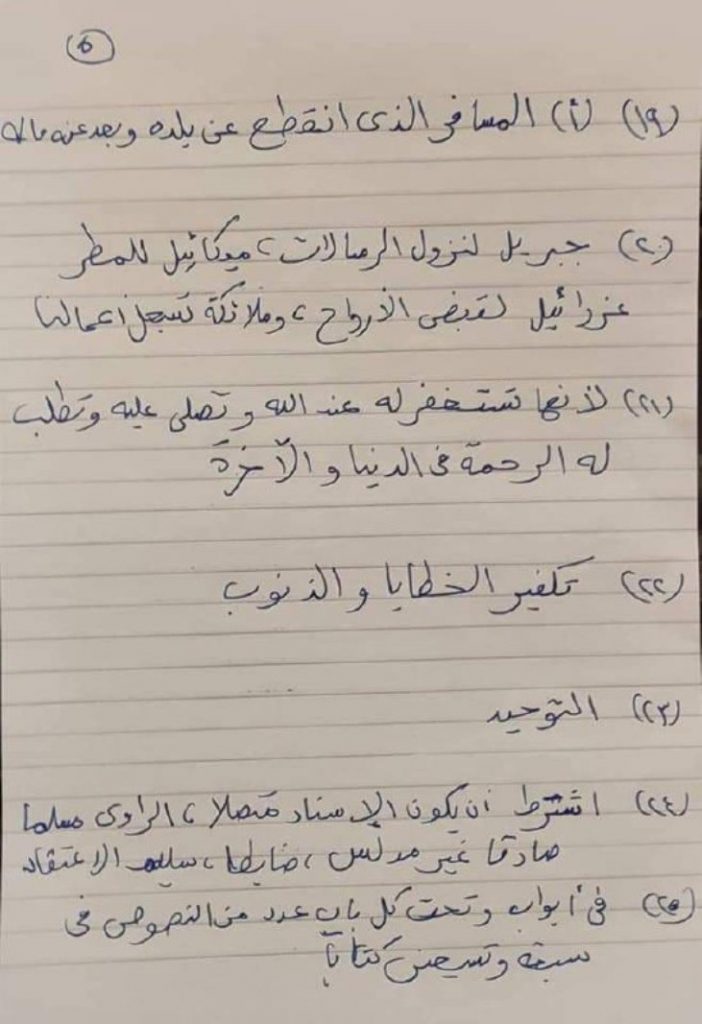 ٥
(١٩) (أ) المسافر الذى انقطع عن بلده وبعد عنه ماله
(٢٠) جبريل لنزول الرسالات، ميكائيل للمطر
عزرائيل لقبض الأرواح، وملائكة تسجل أعمالنا
(٢١) لأنها تستغفر له عند الله وتصلى عليه وتطلب
له الرحمة فى الدنيا والآخرة
(٢٢) تكفير الخطايا والذنوب
(٢٣) التوحيد
(٢٤) اشترط أن يكون الإسناد متصلا، الراوى مسلما
صادقا غير مدلس، ضابطا، سليم الاعتقاد
(٢٥) فى أبواب وتحت كل باب عدد من النصوص فى
سبعة وتسعين كتابًا